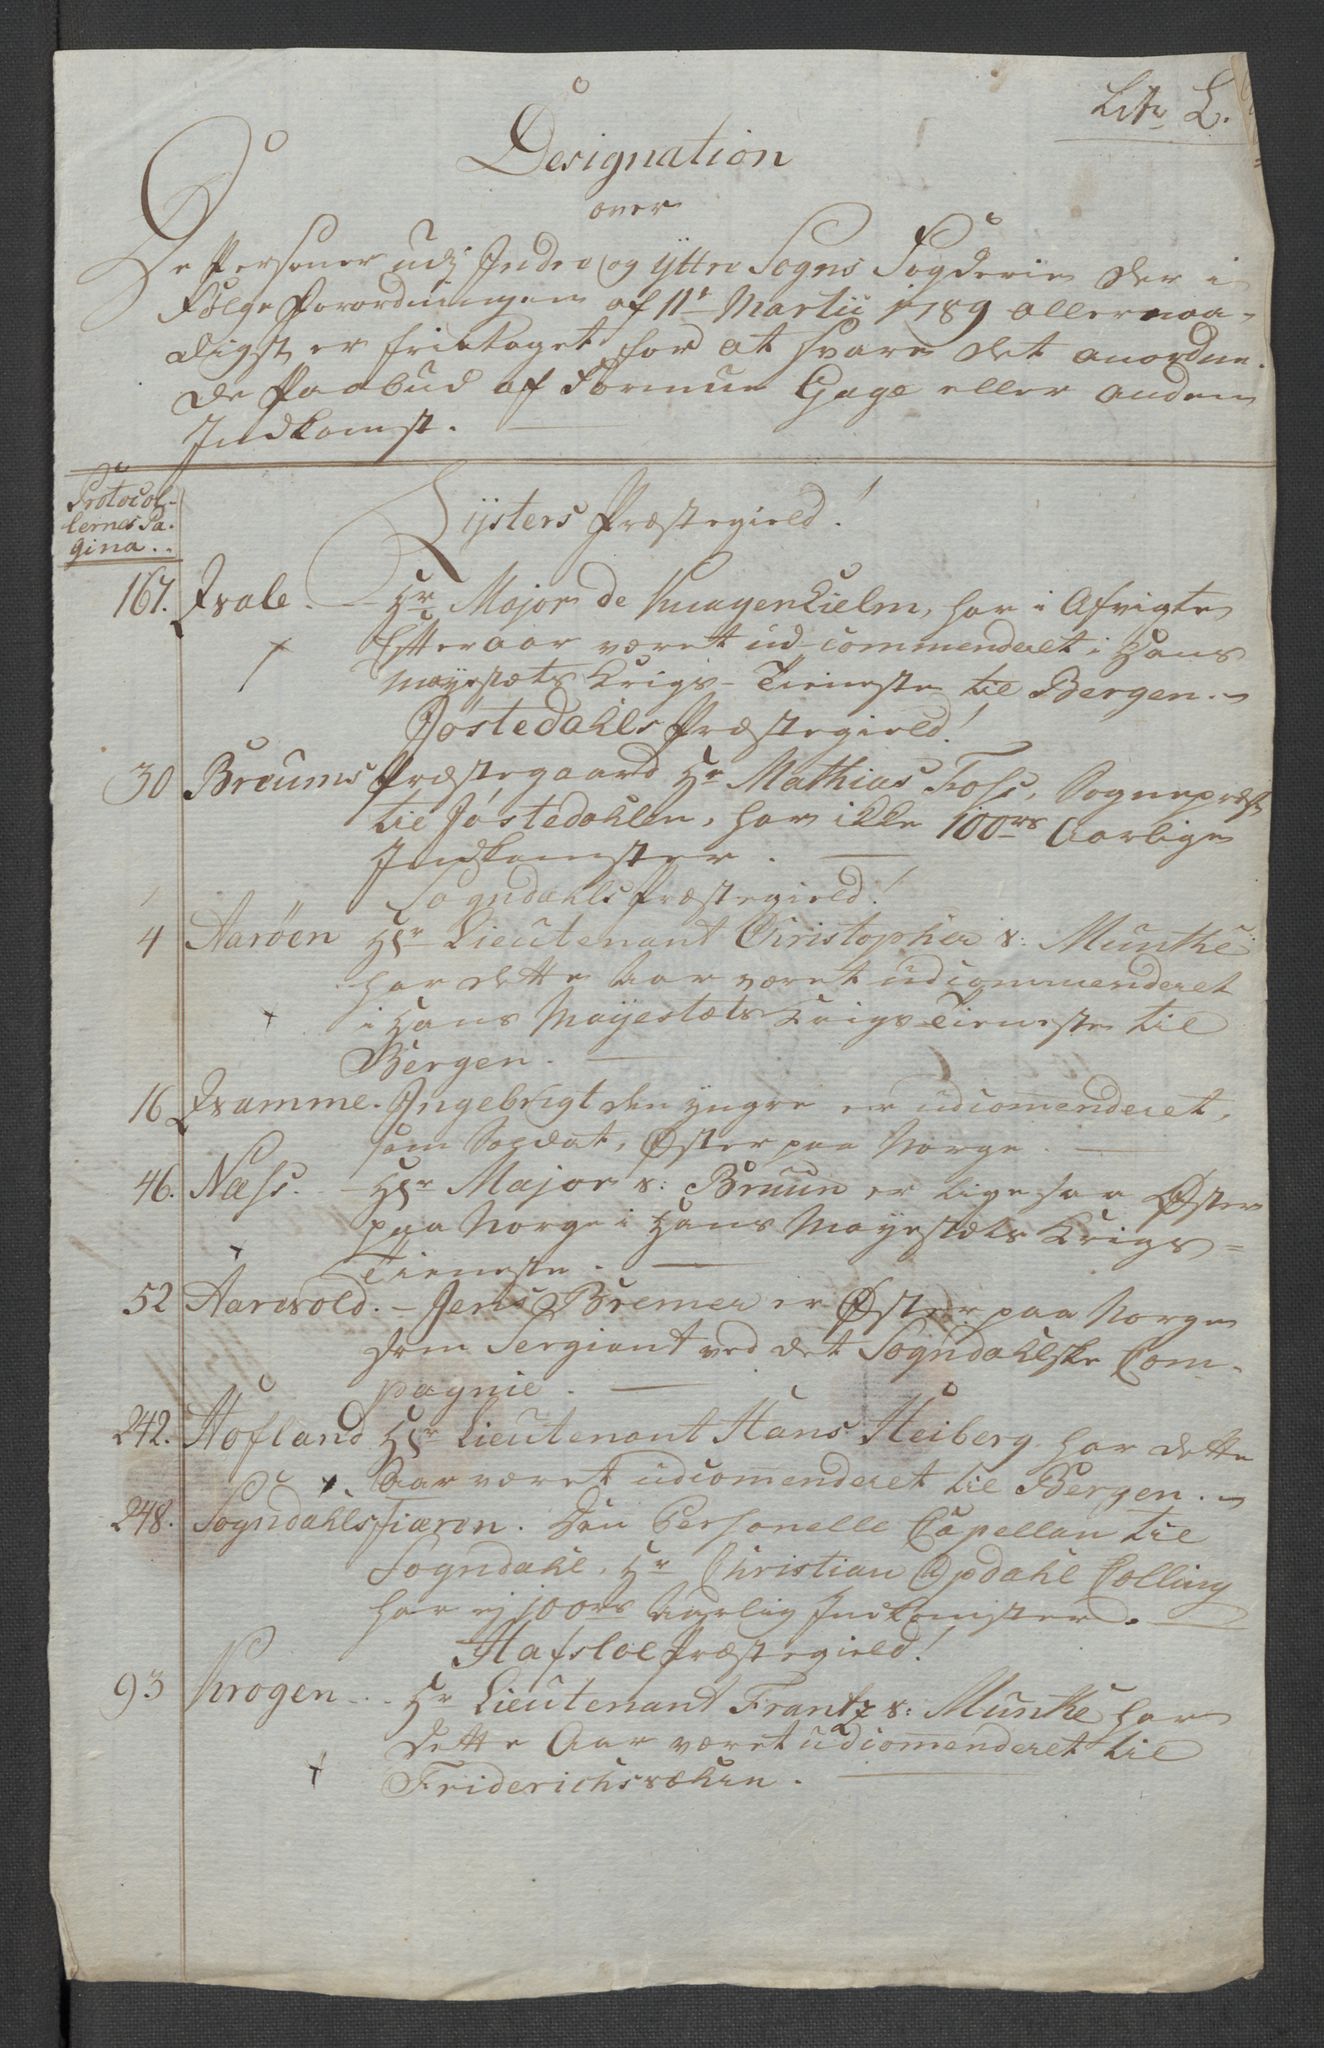 Litr L.
Designation
over
De Personer udj Indre og Yttre Sogns Fogderie der i
Følge Forordningen af 11te Martii 1789 allernaa-
digst er fritaget for at svare det anordne-
de Paabud af Formue Gage eller anden
Indkomst.
Protocol-
lernes Pa-
gina..
Lysters Præstegield!
167. Kvale. - Hr Major de Knagenhielm, har i Afvigte
Efteraar været ud commenderet i Hans
Mayestæts Krigs-Tieneste til Bergen. -
Jostedahls Præstegield!
30 Breums Præstegaard Hr Mathias Foss, Sognepræst
til Jostedahlen, har ikke 100rs Aarlige
Indkomster.
Sogndahls Præstegield!
4 Aarøen Hr Lieutenant Christopher v: Munthe
har dette Aar været udcommenderet
i Hans Mayestæts Krigs Tieneste til
Bergen.
16 Kvamme. Ingebrigt den yngre er udcomenderet,
som Soldat, Øster paa Norge.
46. Næss. - Hr Major v: Bruun er lige saa Øster
paa Norge i Hans Mayestæts Krigs-
Tieneste.
52 Aarevold. - Jens Bremer er Øster paa Norge
som Sergiant ved det Sogndahlske Com-
pagnie.
242. Hofland Hr Lieutenant Hans Heiberg har dette
Aar været udcomenderet til Bergen. -
248. Sogndahlsfiæren. Den Personelle Capellan til
Sogndahl, Hr Christian Opdahl Colling
har ej 100rs Aarlig Indkomster.
Hafsloe Præstegield!
93 Krogen - . Hr Lieutenant Frantz v: Munthe har
dette Aar været udcomenderet til
Friderichsværn.